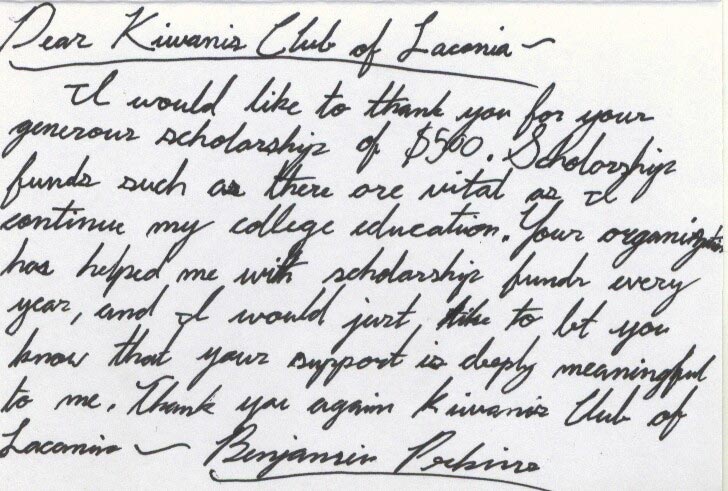 Dear Kiwanis Club of Laconia ~
I would like to thank you for your
generous scholarship of $500. Scholarship
funds such as these are vital as I
continue my college education. Your organization
has helped me with scholarship funds every
year, and I would just like to let you
know that your support is deeply meaningful
to me. Thank you again Kiwanis Club of
Laconia ~ Benjamin Perkins